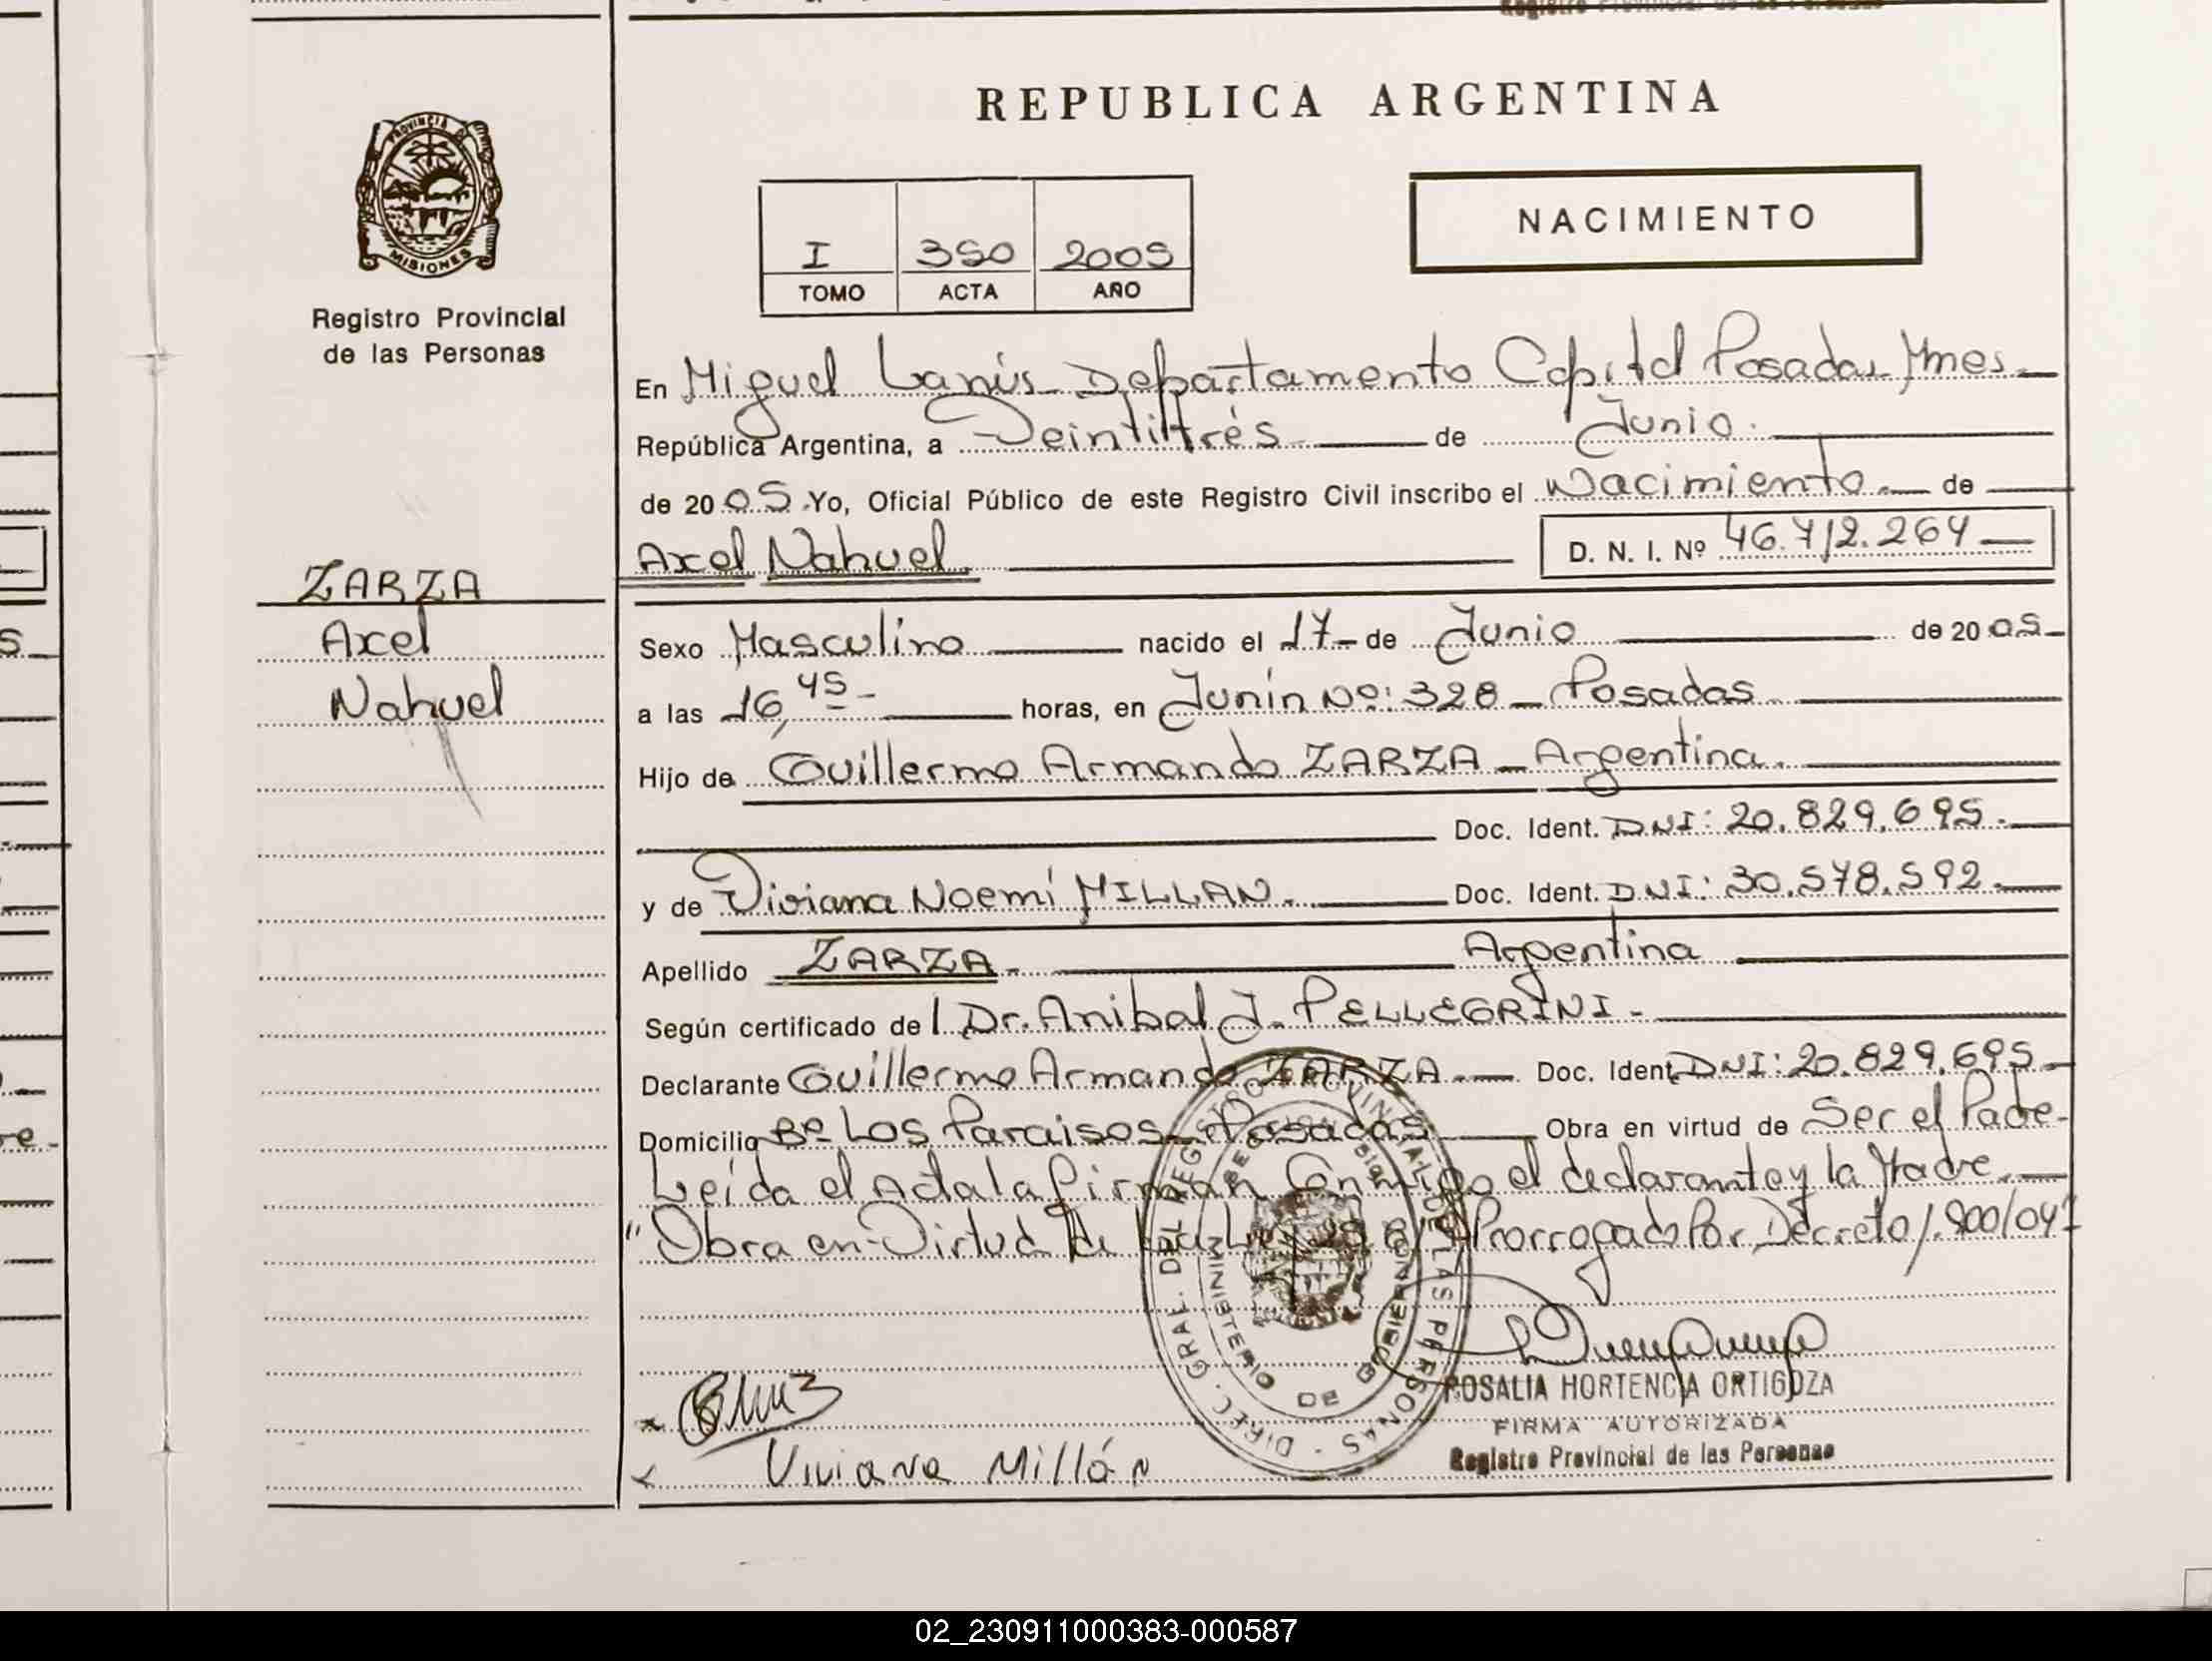 REPUBLICA ARGENTINA
PROVINCIA DE MISIONES
Registro Provincial
de las Personas
I 350 2005
TOMO ACTA AÑO
NACIMIENTO
ZARZA
Axel
Nahuel
En Miguel Lanús - Departamento Capital Posadas Mnes.
República Argentina, a Veintitrés de Junio.
de 20 05. Yo, Oficial Público de este Registro Civil inscribo el Nacimiento de
Axel Nahuel. D. N. I. Nº 46.712.264
Sexo Masculino nacido el 17 - de Junio de 20 05
a las 16,45 - horas, en Junín Nº: 328 - Posadas
Hijo de Guillermo Armando ZARZA - Argentina.
Doc. Ident. DNI: 20.829.695.
y de Viviana Noemí MILLAN. Doc. Ident. DNI: 30.578.592.
Apellido ZARZA - Argentina
Según certificado de l Dr. Anibal J. PELLEGRINI -
Declarante Guillermo Armando ZARZA Doc. Ident. DNI: 20.829.695
Domicilio Bº Los Paraisos - Posadas Obra en virtud de Ser el Padre -
Leída el Acta la firman Conmigo el declarante y la Madre.
"Obra en Virtud de Prorrogado Por Decreto 1.900/04"
DIREC. GRAL. DEL REGISTRO PROVINCIAL DE LAS PERSONAS
MINISTERIO DE GOBIERNO
ROSALIA HORTENCIA ORTIGOZA
FIRMA AUTORIZADA
Registro Provincial de las Personas
Viviana Millán
02_230911000383-000587